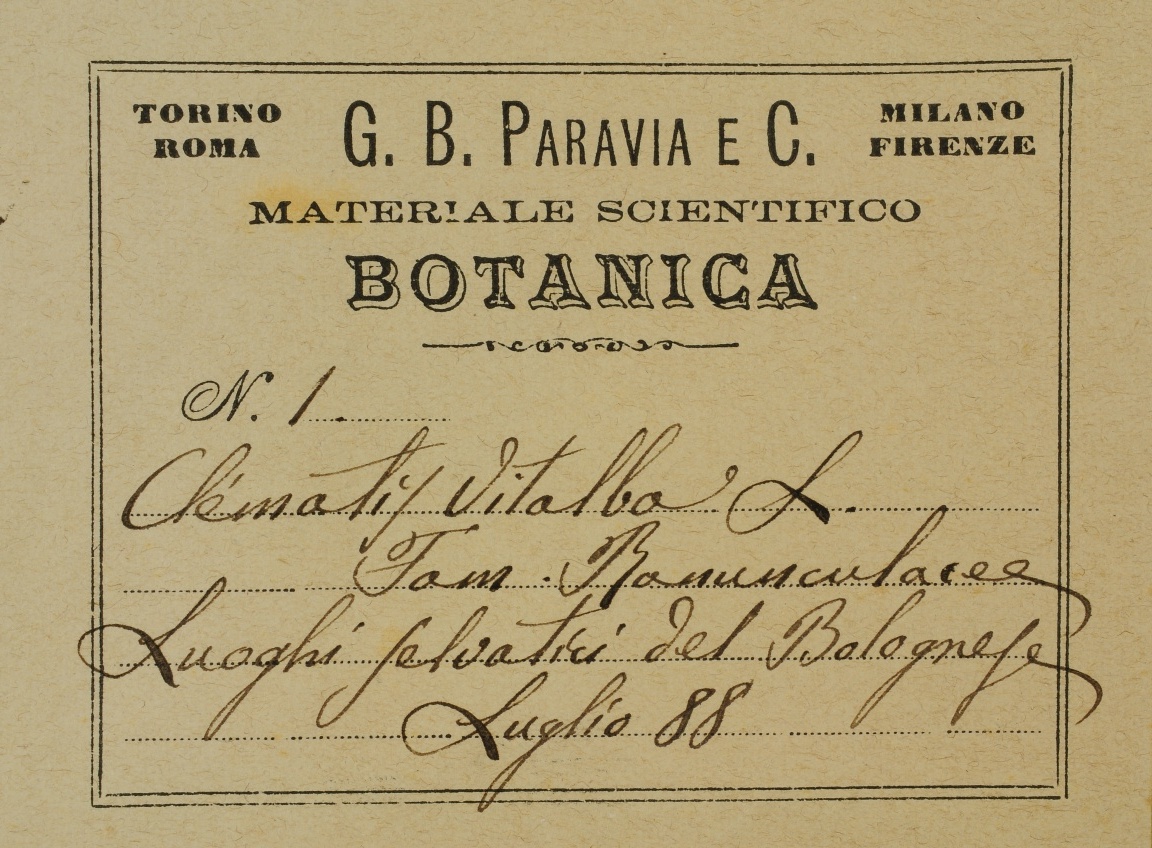 TORINO G. B. PARAVIA E C. MILANO
ROMA FIRENZE
MATERIALE SCIENTIFICO
BOTANICA
N. 1
Clématis Vitalba L.
Fam. Ranunculacee
Luoghi selvatici del Bolognese
Luglio 88